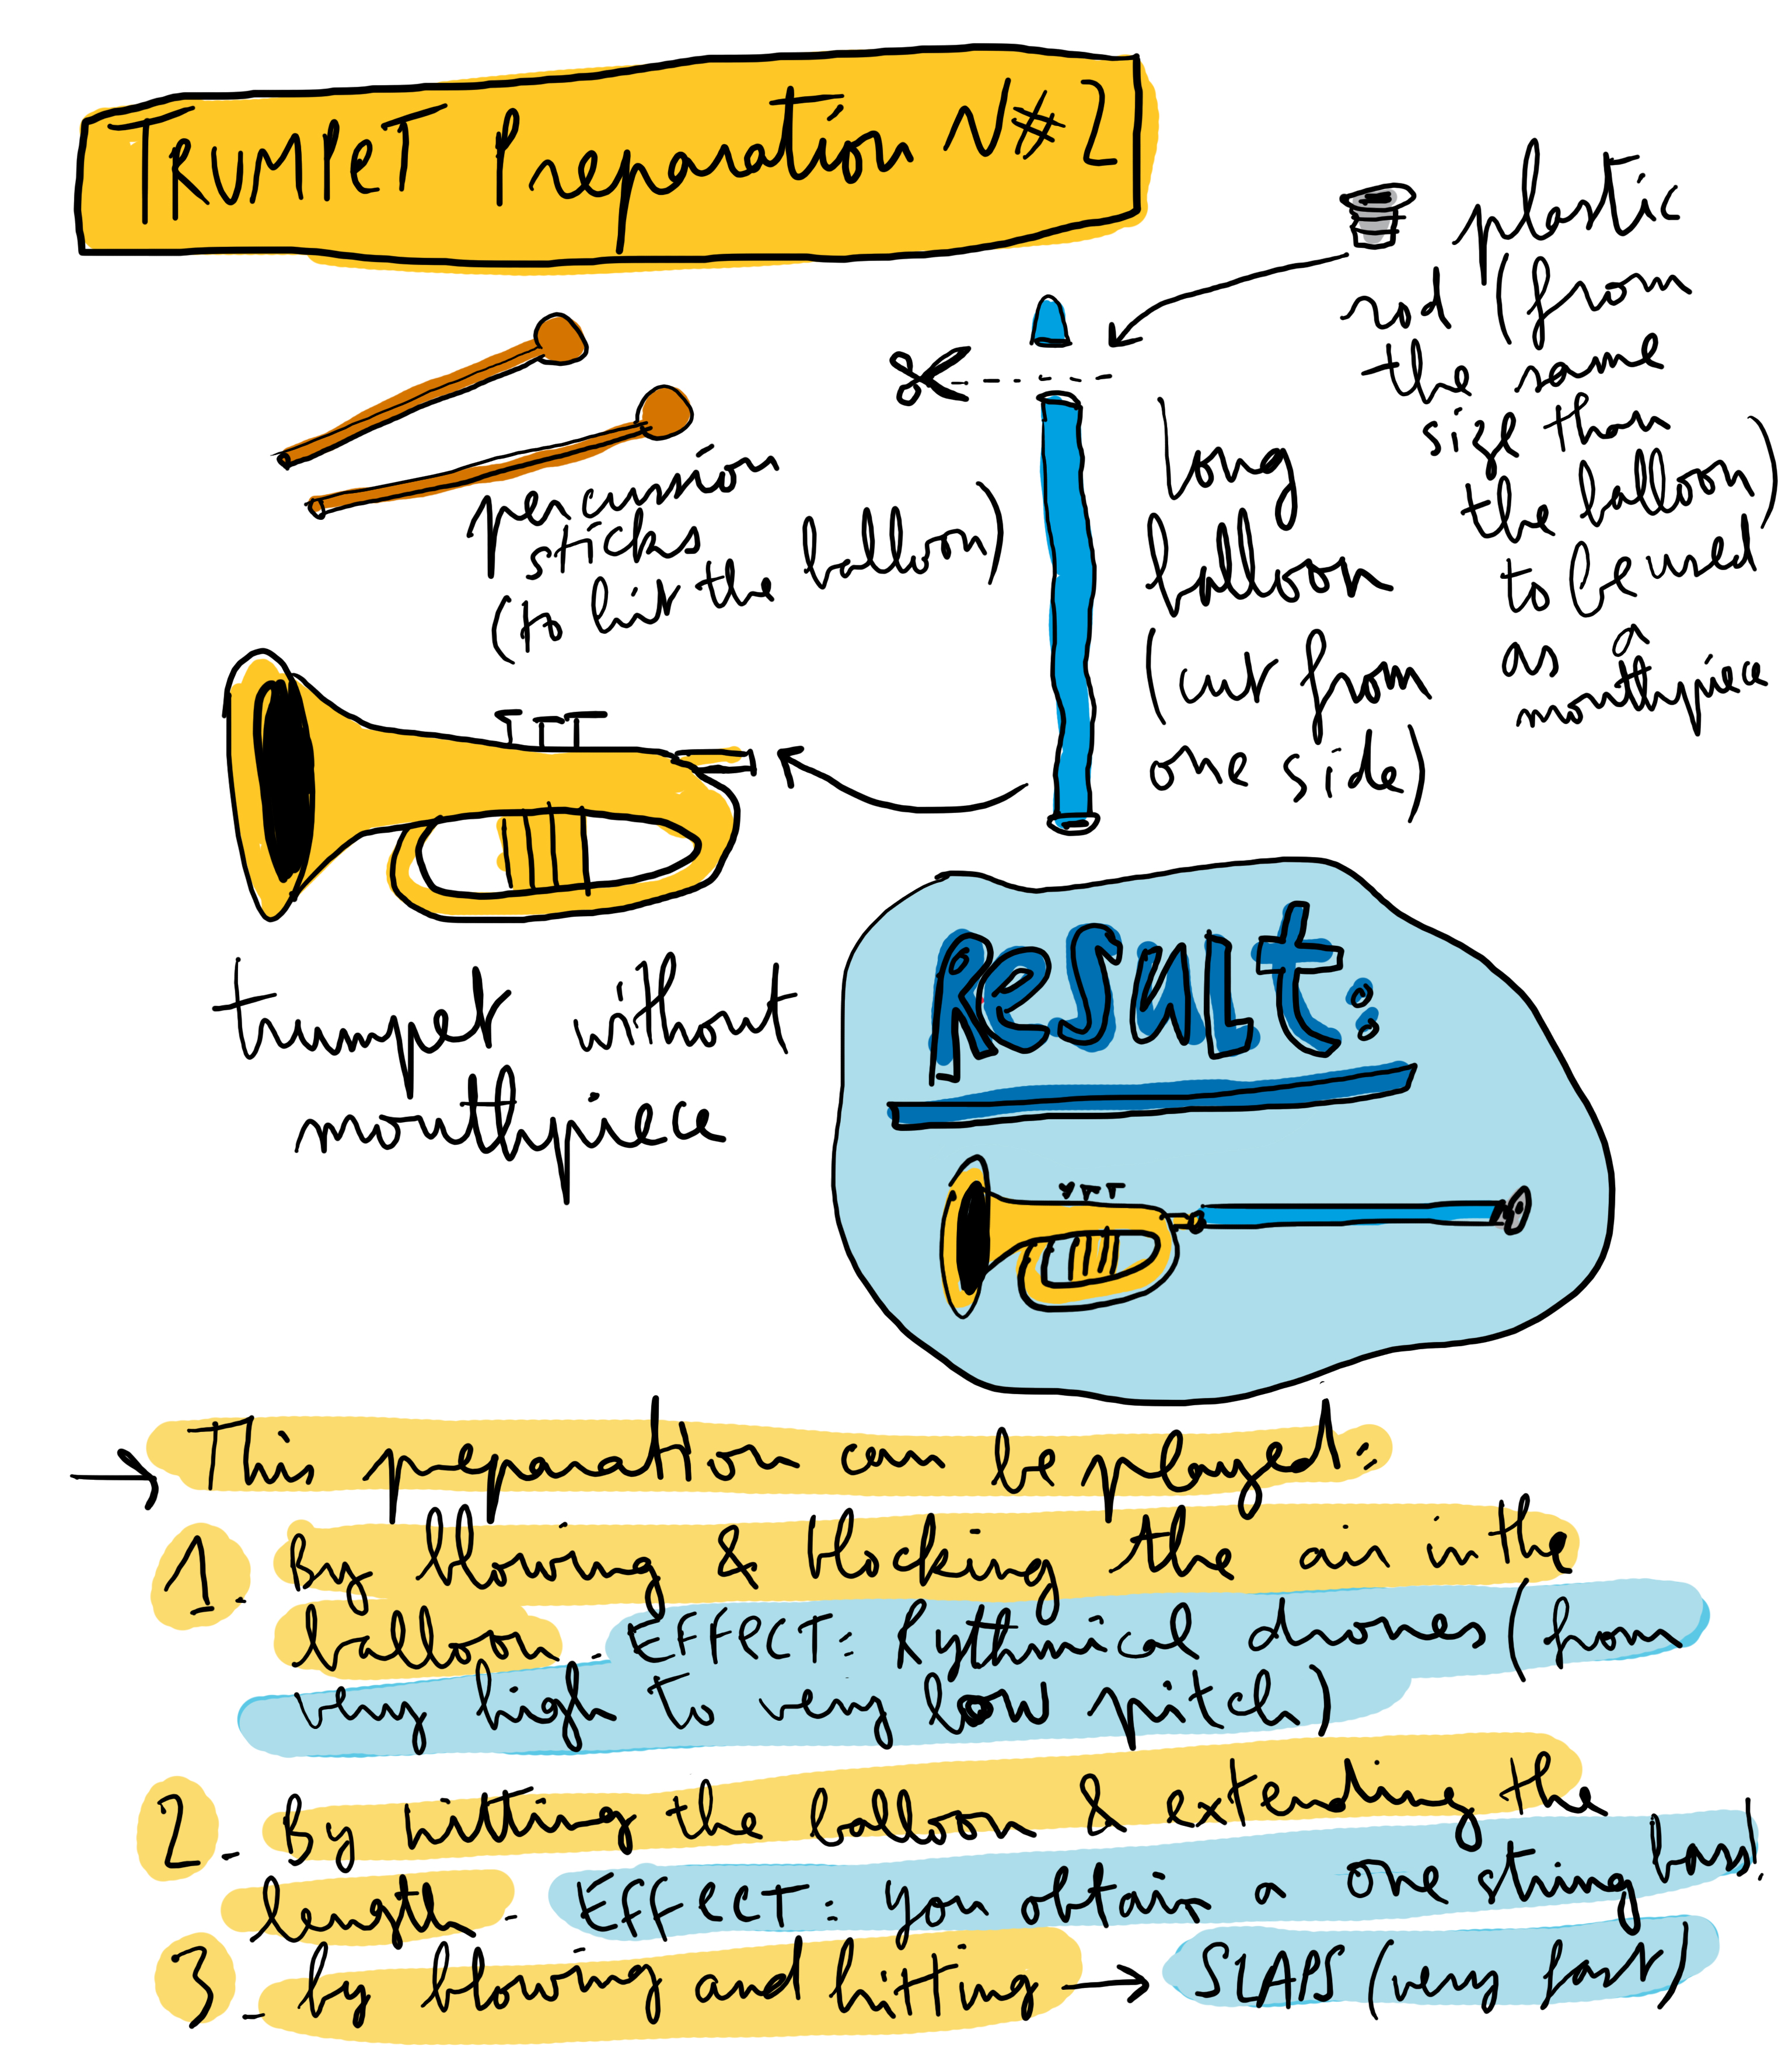 TRUMPET Preparation N#2
plastic
rod (from
the same
size than
the balloon)
to be used
as a
mouthpiece
percussion
sticks
(to hit the balloon)
long
balloon
(cut from
one side)
trumpet without
mouthpiece
Result:
→ This preparation can be played:
1. By blowing & blocking the air in the
balloon. EFFECT: Rythmical drones (from
very high to very low pitch)
2_ By hitting the balloon & extending the
length. EFFECT: you obtain a one string bass.
3_ by blowing and hitting → SLAPS (very fast)